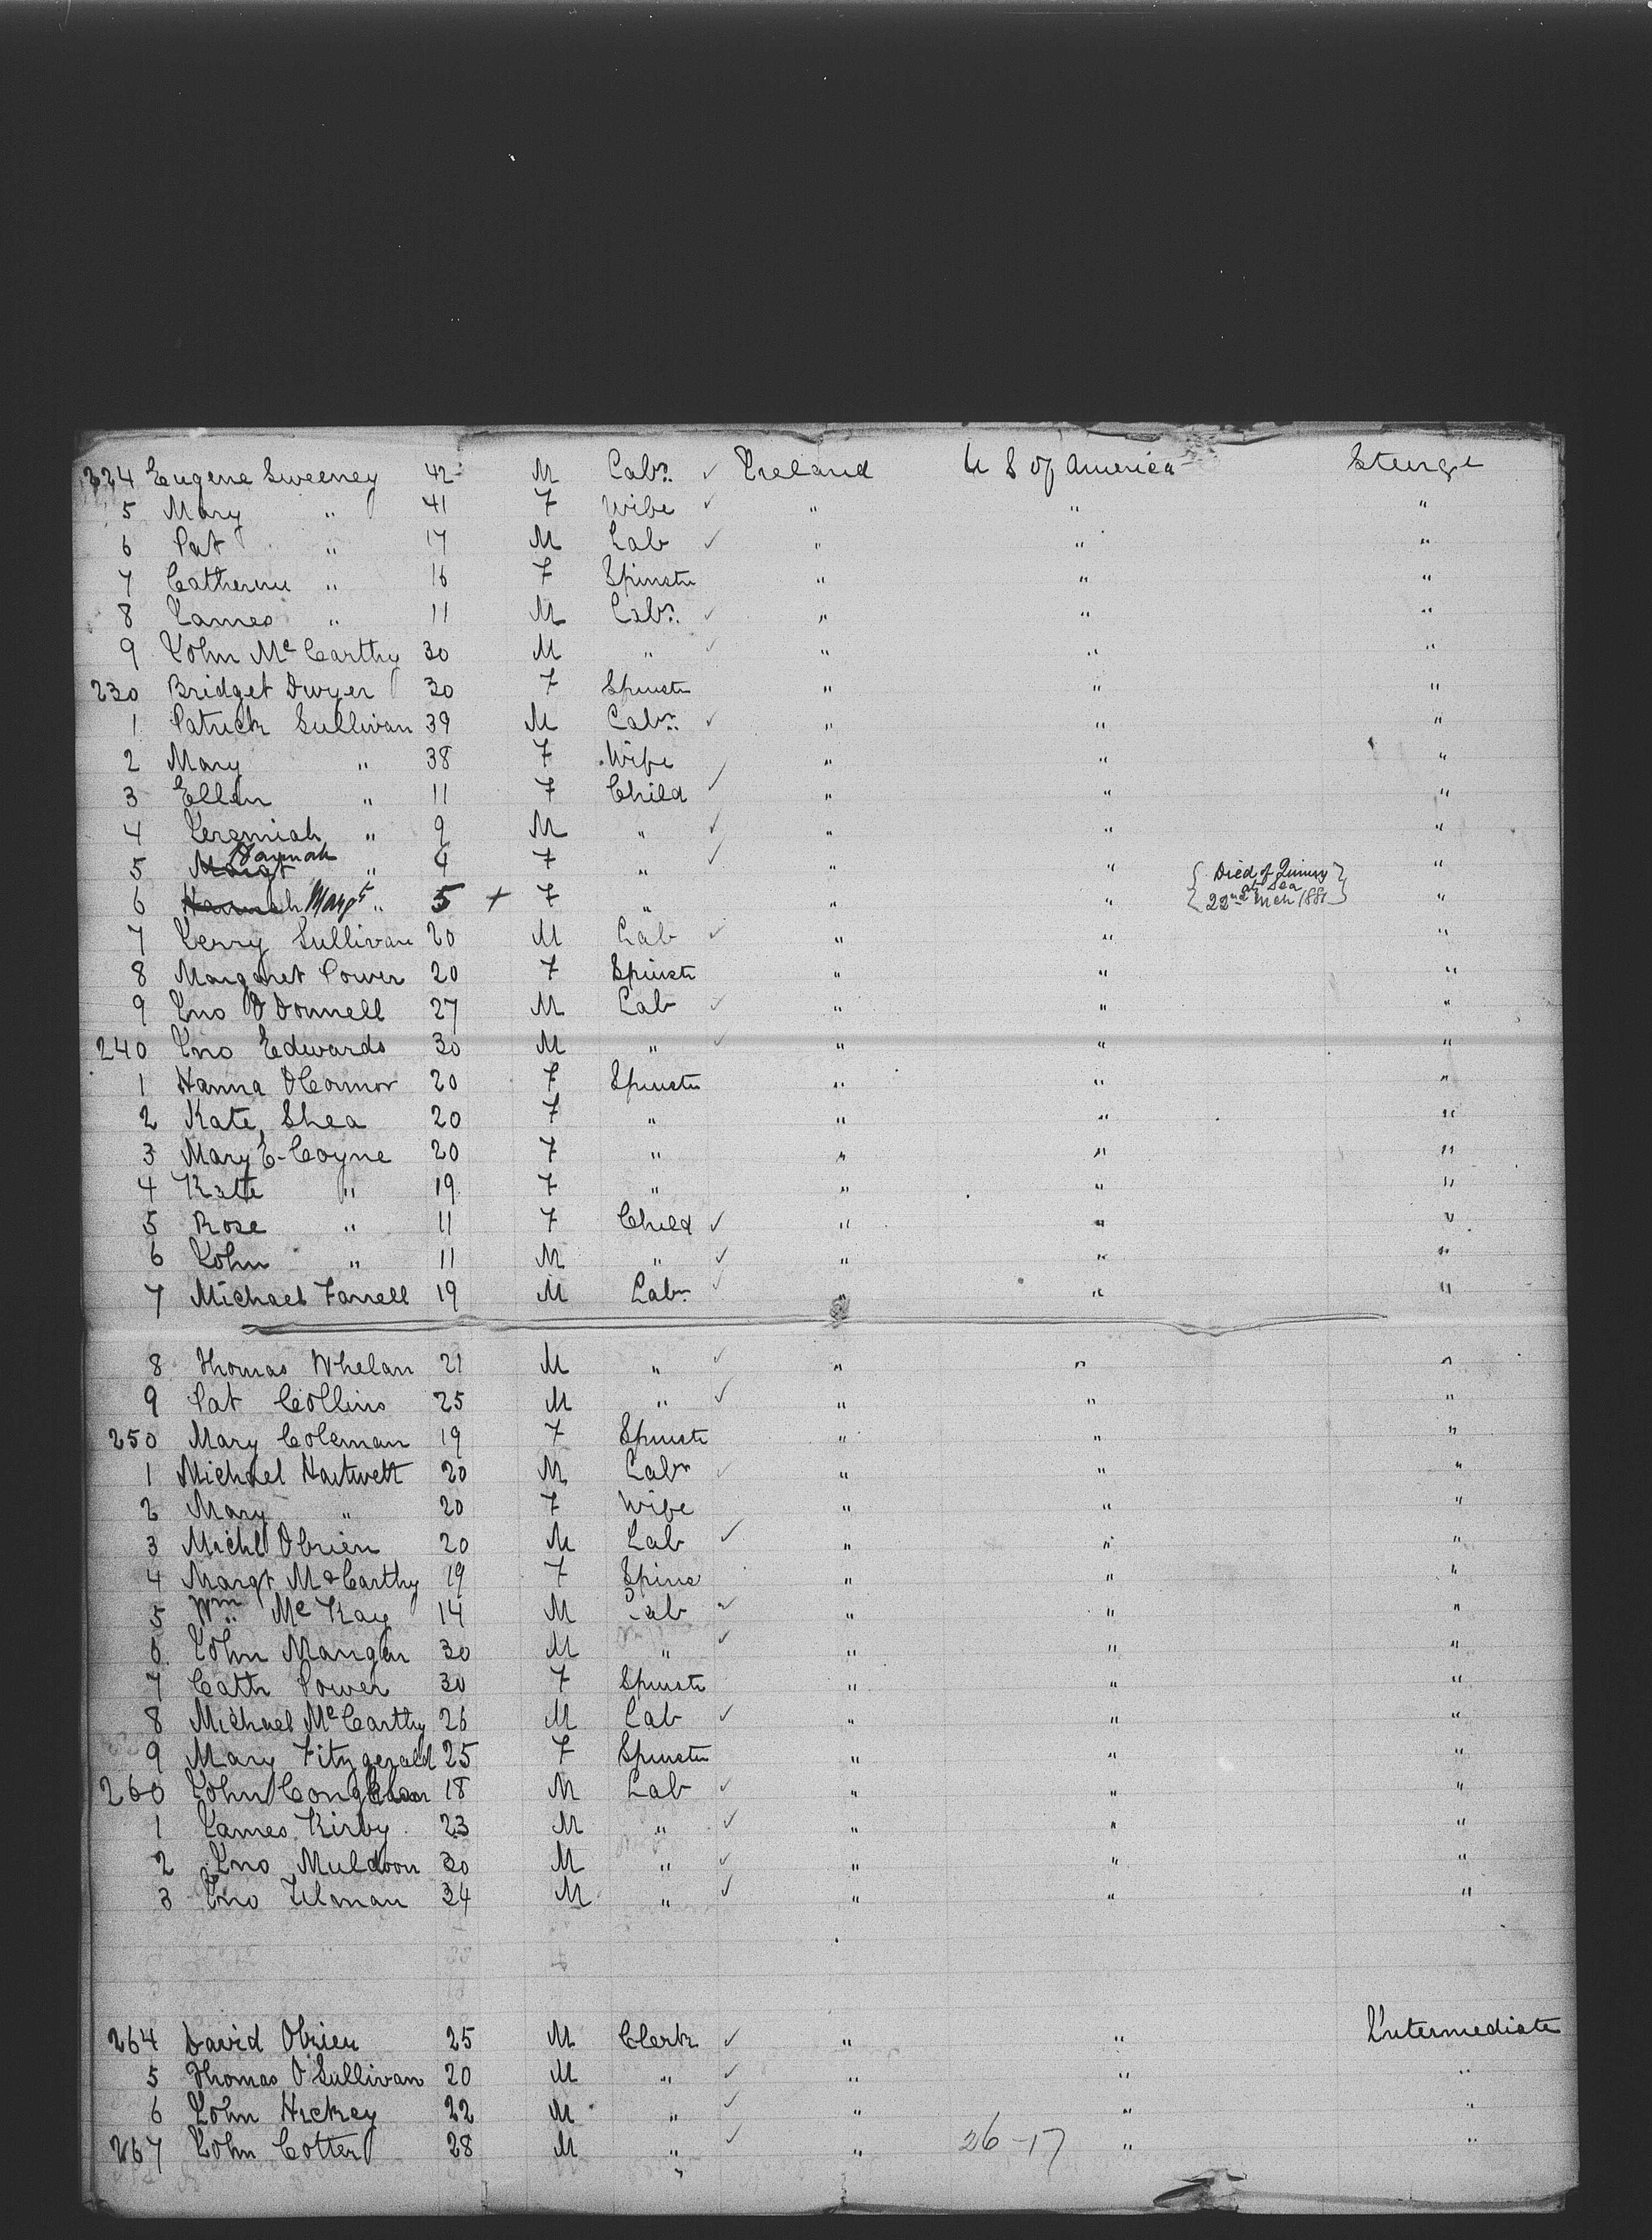 224 Eugene Sweeney 42 M Labr. ✓ Ireland U S of America Steerge
5 Mary " 41 F Wife ✓ " " "
6 Pat " 17 M Lab ✓ " " "
7 Catherine " 16 F Spinstr " " "
8 James " 11 M Labr. ✓ " " "
9 John McCarthy 30 M " ✓ " " "
230 Bridget Dwyer 30 F Spinstr " " "
1 Patrick Sullivan 39 M Labr. ✓ " " "
2 Mary " 38 F Wife " " "
3 Ellen " 11 F Child ✓ " " "
4 Jeremiah " 9 M " ✓ " " "
5 Margt Hannah " 4 F " ✓ " " "
6 Hannah Margt " 5 + F " " " { Died of Quinsy at Sea 22nd Mch 1881 } "
7 Jerry Sullivan 20 M Lab ✓ " " "
8 Margaret Power 20 F Spinstr " " "
9 Jno O Donnell 27 M Lab ✓ " " "
240 Jno Edwards 30 M " ✓ " " "
1 Hanna OConnor 20 F Spinstr " " "
2 Kate Shea 20 F " " " "
3 Mary E. Coyne 20 F " " " "
4 Kate " 19 F " " " "
5 Rose " 11 F Child ✓ " " "
6 John " 11 M " ✓ " " "
7 Michael Farrell 19 M Labr ✓ " " "
8 Thomas Whelan 21 M " ✓ " " "
9 Pat Collins 25 M " ✓ " " "
250 Mary Coleman 19 F Spinstr " " "
1 Michael Hartnett 20 M Labr ✓ " " "
2 Mary " 20 F Wife " " "
3 Michl Obrien 20 M Lab ✓ " " "
4 Margt McCarthy 19 F Spins " " "
5 Wm " McKay 14 M Lab ✓ " " "
6 John Mangan 30 M " ✓ " " "
7 Cath Power 30 F Spinstr " " "
8 Michael McCarthy 26 M Lab ✓ " " "
9 Mary Fitzgerald 25 F Spinstr " " "
260 John Coughlan 18 M Lab ✓ " " "
1 James Kirby 23 M " ✓ " " "
2 Jno Muldoon 30 M " ✓ " " "
3 Jno 34 M " ✓ " " "
264 David Obrien 25 M Clerk ✓ " " Intermediate
5 Thomas O'Sullivan 20 M " ✓ " " "
6 John Hickey 22 M " ✓ " " "
267 John Cotter 28 M " ✓ " 26-17 " "